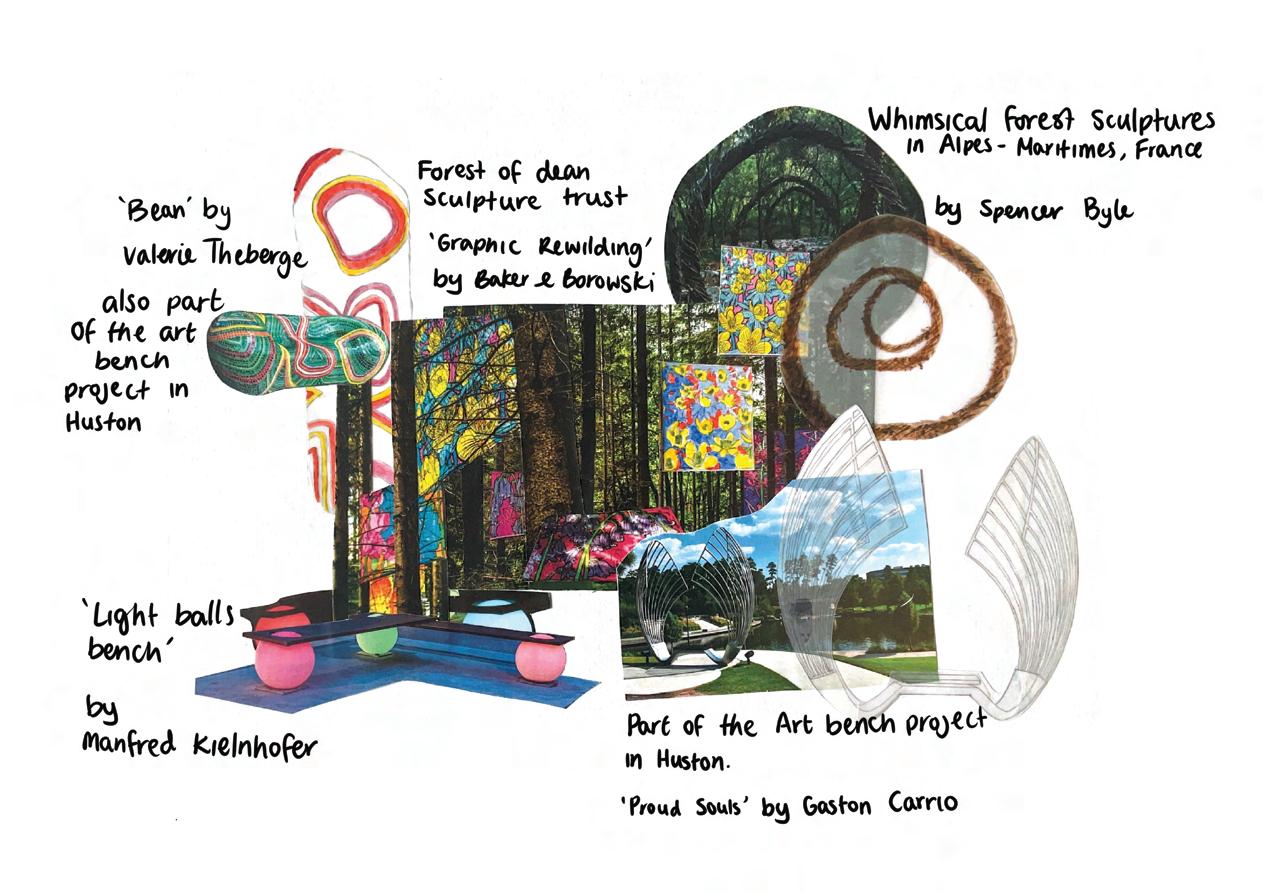 'Bean' by
Valerie Theberge
also part
Of the art
bench
project in
Huston
Forest of dean
Sculpture trust
'Graphic Rewilding'
by Baker & Borowski
Whimsical Forest Sculptures
in Alpes - Maritimes, France
by Spencer Byle
'Light balls
bench'
by
Manfred Kielnhofer
Part of the Art bench project
in Huston.
'Proud Souls' by Gaston Carrio